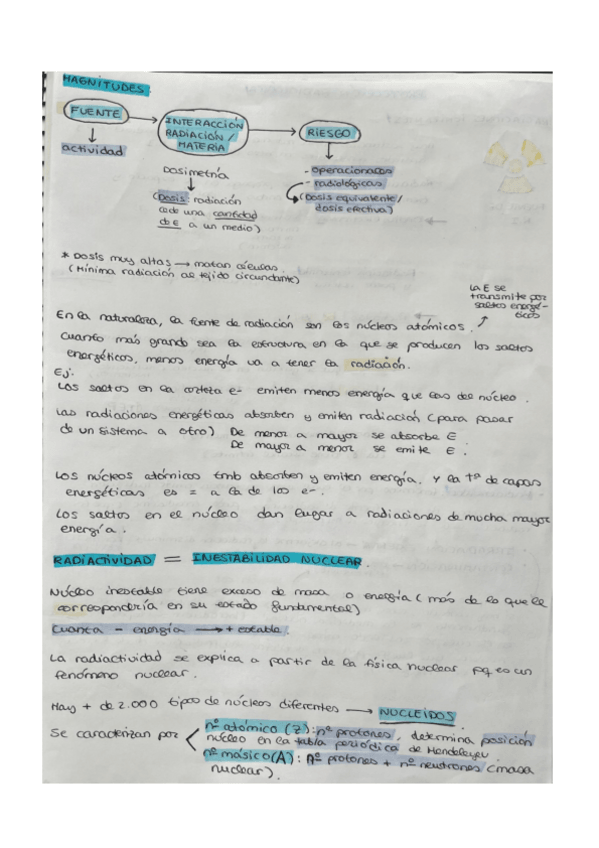 MAGNITUDES:
FUENTE
INTERACCIÓN
RADIACIÓN /
MATERIA
RIESGO
actividad
Dosimetría
(Dosis radiación
cede una cantidad
de E a un medio)
- operacionales
- radiológicas
(Dosis equivalente/
dosis efectiva)
* Dosis muy altas → matan células.
(Mínima radiación al tejido circundante)
La E se
transmite por
saltos energé-
ticos
En la naturaleza, la fuente de radiación son los núcleos atómicos.
Cuanto más grande sea la estructura en la que se producen los saltos
energéticos, menos energía va a tener la radiación.
Ej:
Los saltos en la corteza e- emiten menos energía que los del núcleo.
Las radiaciones energéticas absorben y emiten radiación (para pasar
de un sistema a otro) De menor a mayor se absorbe E.
De mayor a menor se emite E.
Los núcleos atómicos tmb absorben y emiten energía. y la Tª de capas
energéticas es = a la de los e-.
Los saltos en el núcleo dan lugar a radiaciones de mucha mayor
energía.
RADIACTIVIDAD = INESTABILIDAD NUCLEAR.
Núcleo inestable tiene exceso de masa o energía (más de lo que le
correspondería en su estado fundamental)
Cuanta - energía → + estable.
La radiactividad se explica a partir de la física nuclear pq es un
fenómeno nuclear.
Hay + de 2.000 tipos de núcleos diferentes → NUCLEIDOS.
Se caracterizan por
nº atómico (Z): nº protones, determina posición
núcleo en la tabla periódica de Mendeleyev.
nº másico (A): nº protones + nº neutrones (masa
nuclear).